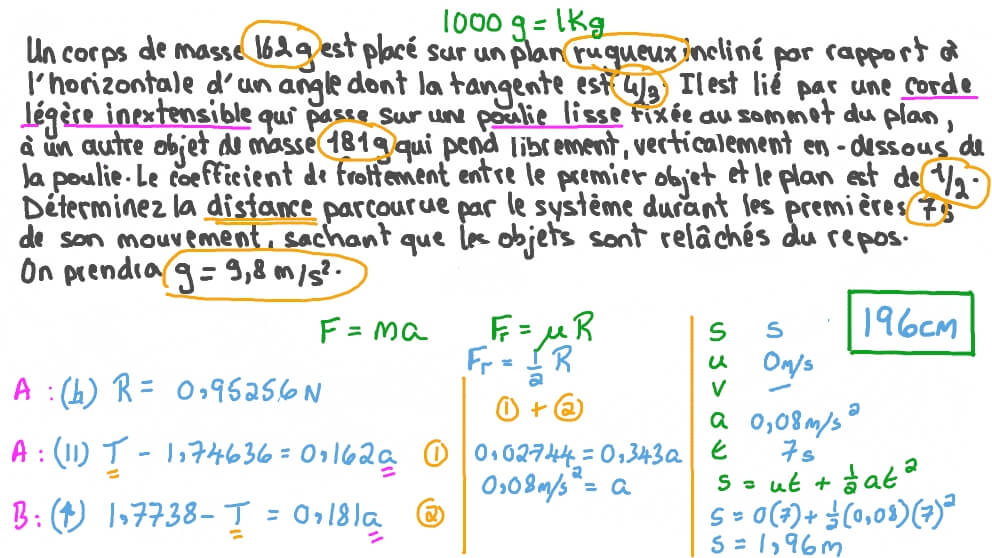 1000 g = 1Kg
Un corps de masse 162g est placé sur un plan rugueux incliné par rapport à
l'horizontale d'un angle dont la tangente est 4/3. Il est lié par une corde
légère inextensible qui passe sur une poulie lisse fixée au sommet du plan,
à un autre objet de masse 181g qui pend librement, verticalement en-dessous de
la poulie. Le coefficient de frottement entre le premier objet et le plan est de 1/2.
Déterminez la distance parcourue par le système durant les premières 7s
de son mouvement, sachant que les objets sont relâchés du repos.
On prendra g = 9,8 m/s².
F = ma
Fr = μR
Fr = 1/2 R
A : (h) R = 0,95256N
A : (11) T - 1,74636 = 0,162a ①
B : (↑) 1,7738 - T = 0,181a ②
① + ②
0,02744 = 0,343a
0,08m/s² = a
196cm
s s
u 0m/s
v —
a 0,08m/s²
t 7s
s = ut + 1/2 at²
s = 0(7) + 1/2 (0,08)(7)²
s = 1,96m